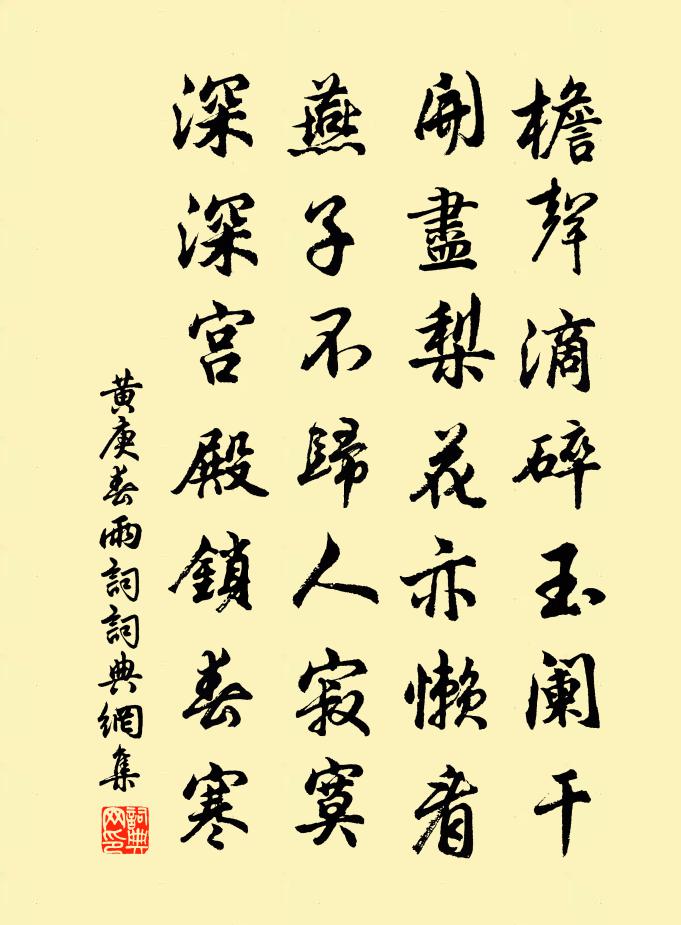 檐聲滴碎玉闌干
開盡梨花亦懶看
燕子不歸人寂寞
深深宮殿鎖春寒
黃庚春雨詞詞典網集
詞典網印